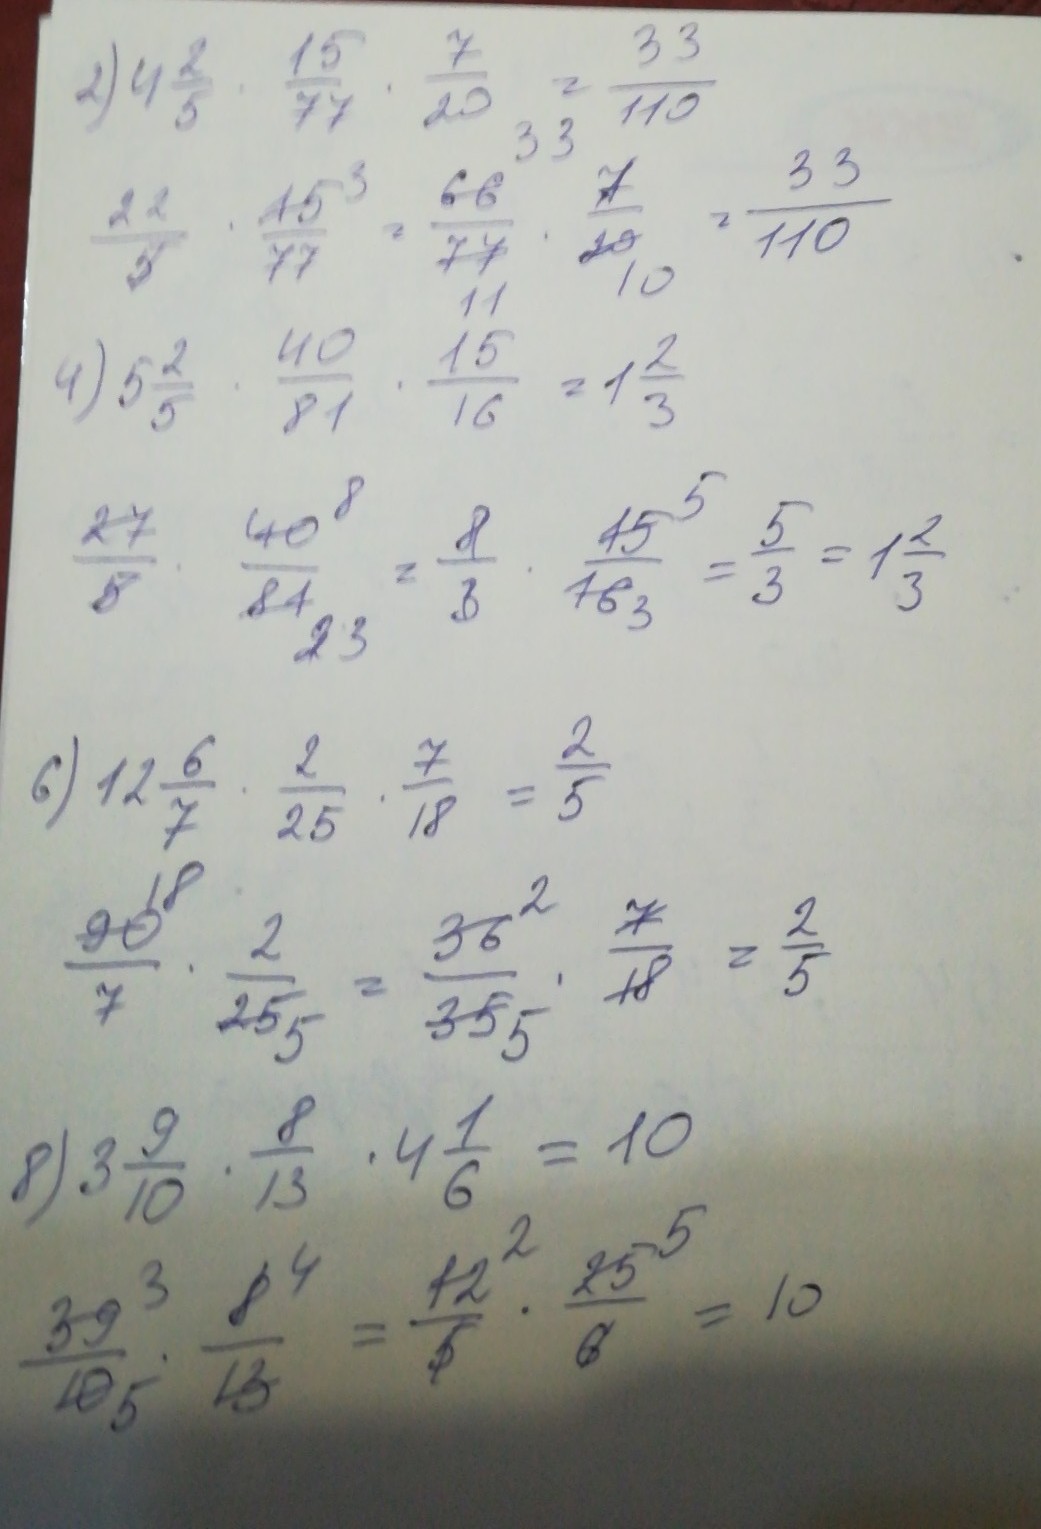 2) 4 2/5 · 15/77 · 7/20 = 33/110
22/5 · 15/77 3 = 66/77 33 11 · 7/20 10 = 33/110
4) 5 2/5 · 40/81 · 15/16 = 1 2/3
27/5 · 40/81 8 23 = 8/3 · 15/16 5 3 = 5/3 = 1 2/3
6) 12 6/7 · 2/25 · 7/18 = 2/5
90/7 18 · 2/25 5 = 36/35 2 5 · 7/18 = 2/5
8) 3 9/10 · 8/13 · 4 1/6 = 10
39/10 3 5 · 8/13 4 = 12/5 2 · 25/6 5 = 10